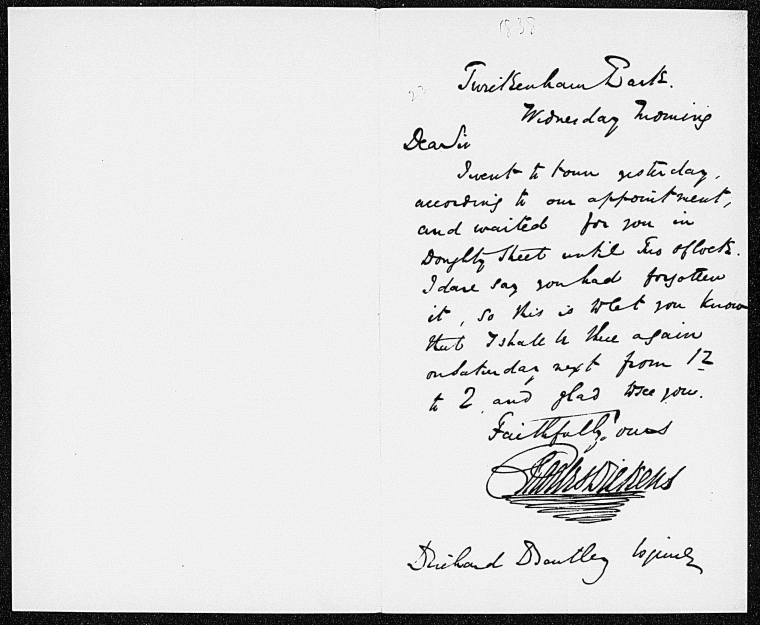 1838
Twickenham Park.
Wednesday Morning
Dear Sir
I went to town yesterday,
according to our appointment,
and waited for you in
Doughty Street until Two oClock.
I dare say you had forgotten
it, so this is to let you know
that I shall be there again
on Saturday next from 12
to 2, and glad to see you.
Faithfully Yours
Charles Dickens
Richard Bentley Esquire